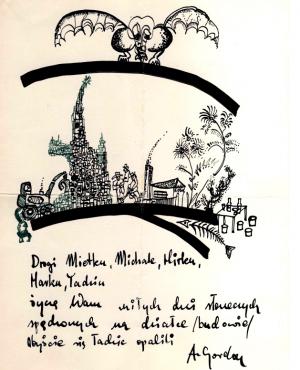 Drogi Mietku, Michale, Mirku,
Marku, Tadziu
życzę Wam miłych dni słonecznych
spędzonych na działce /budowie/
Abyście się ładnie opalili
A. Gordon